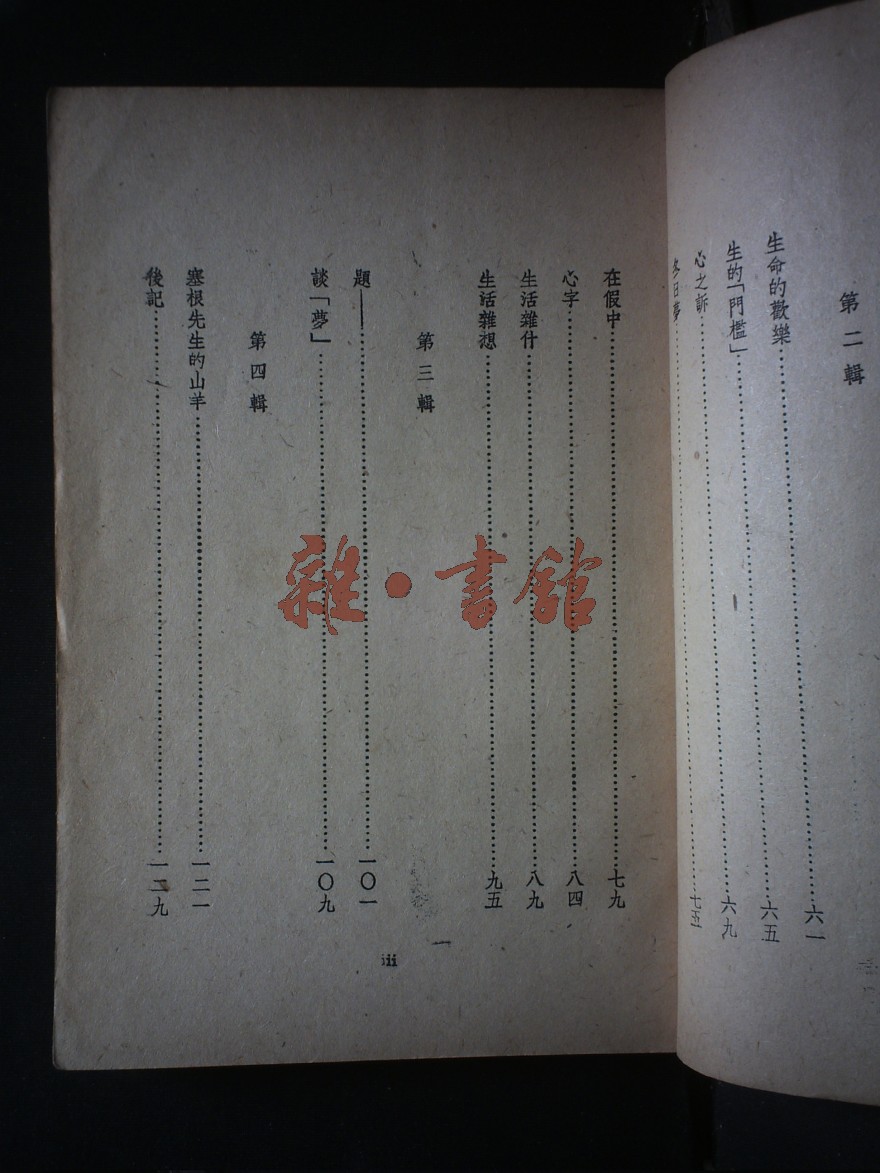 第二輯
生命的歡樂……六一
生的「門檻」……六五
心之訴……六九
冬日夢……七五
在假中……七九
心字……八四
生活雜什……八九
生活雜想……九五
第三輯
題——……一〇一
談「夢」……一〇九
第四輯
塞根先生的山羊……一二一
後記……一二九
iii
雜·書館